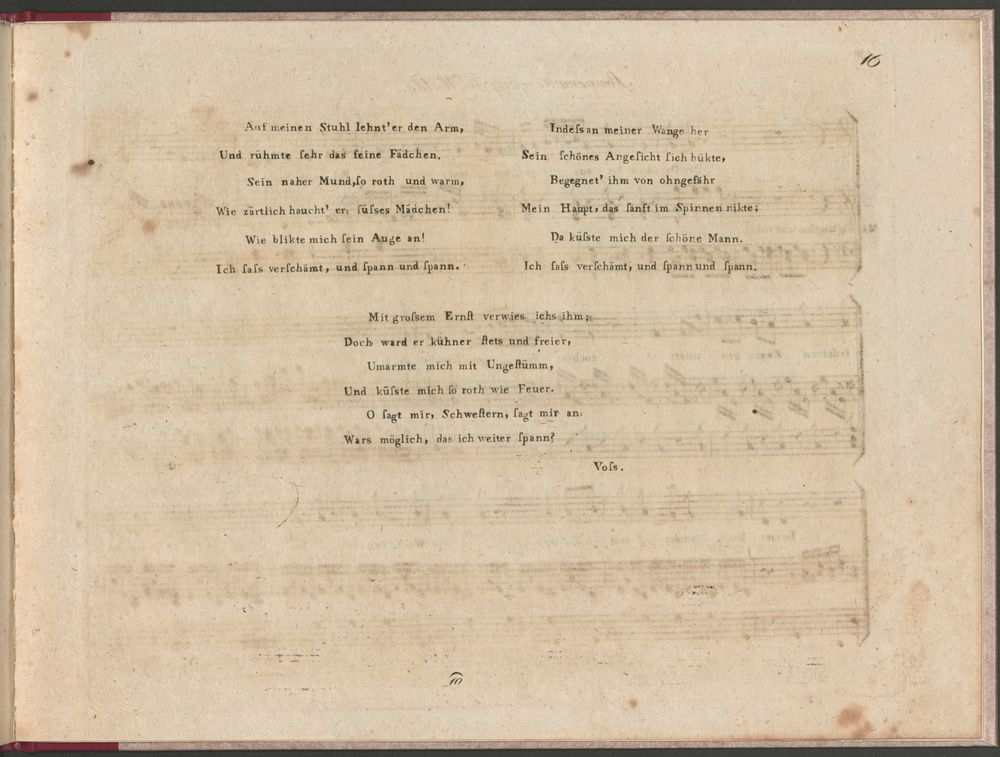 16
Auf meinen Stuhl lehnt'er den Arm,
Und rühmte ſehr das feine Fädchen.
Sein naher Mund,ſo roth und warm,
Wie zärtlich haucht' er: ſüſses Mädchen!
Wie blikte mich ſein Auge an!
Ich ſaſs verſchämt, und ſpann und ſpann.
Indeſs an meiner Wange her
Sein ſchönes Angeſicht ſich bükte,
Begegnet' ihm von ohngefähr
Mein Haupt, das ſanft im Spinnen nikte;
Da küſste mich der ſchöne Mann.
Ich ſaſs verſchämt, und ſpann und ſpann.
Mit groſsem Ernſt verwies ichs ihm;
Doch ward er kühner ſtets und freier,
Umarmte mich mit Ungeſtümm,
Und küſste mich ſo roth wie Feuer.
O ſagt mir, Schweſtern, ſagt mir an:
Wars möglich, das ich weiter ſpann?
Voſs.
10